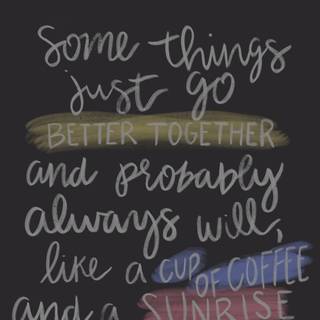 Some things
just go
BETTER TOGETHER
and probably
always will,
like a CUP OF COFFEE
and a SUNRISE